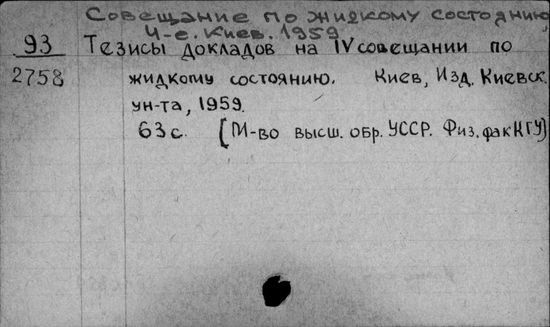 Совещание по жидкому состоянию
4-е. Киев. 1959
93 Тезисы докладов на IV совещании по
2758 жидкому состоянию. Киев, Изд. Киевск.
ун-та, 1959.
63 с. [М-во высш. обр. УССР. Физ. фак КГУ)